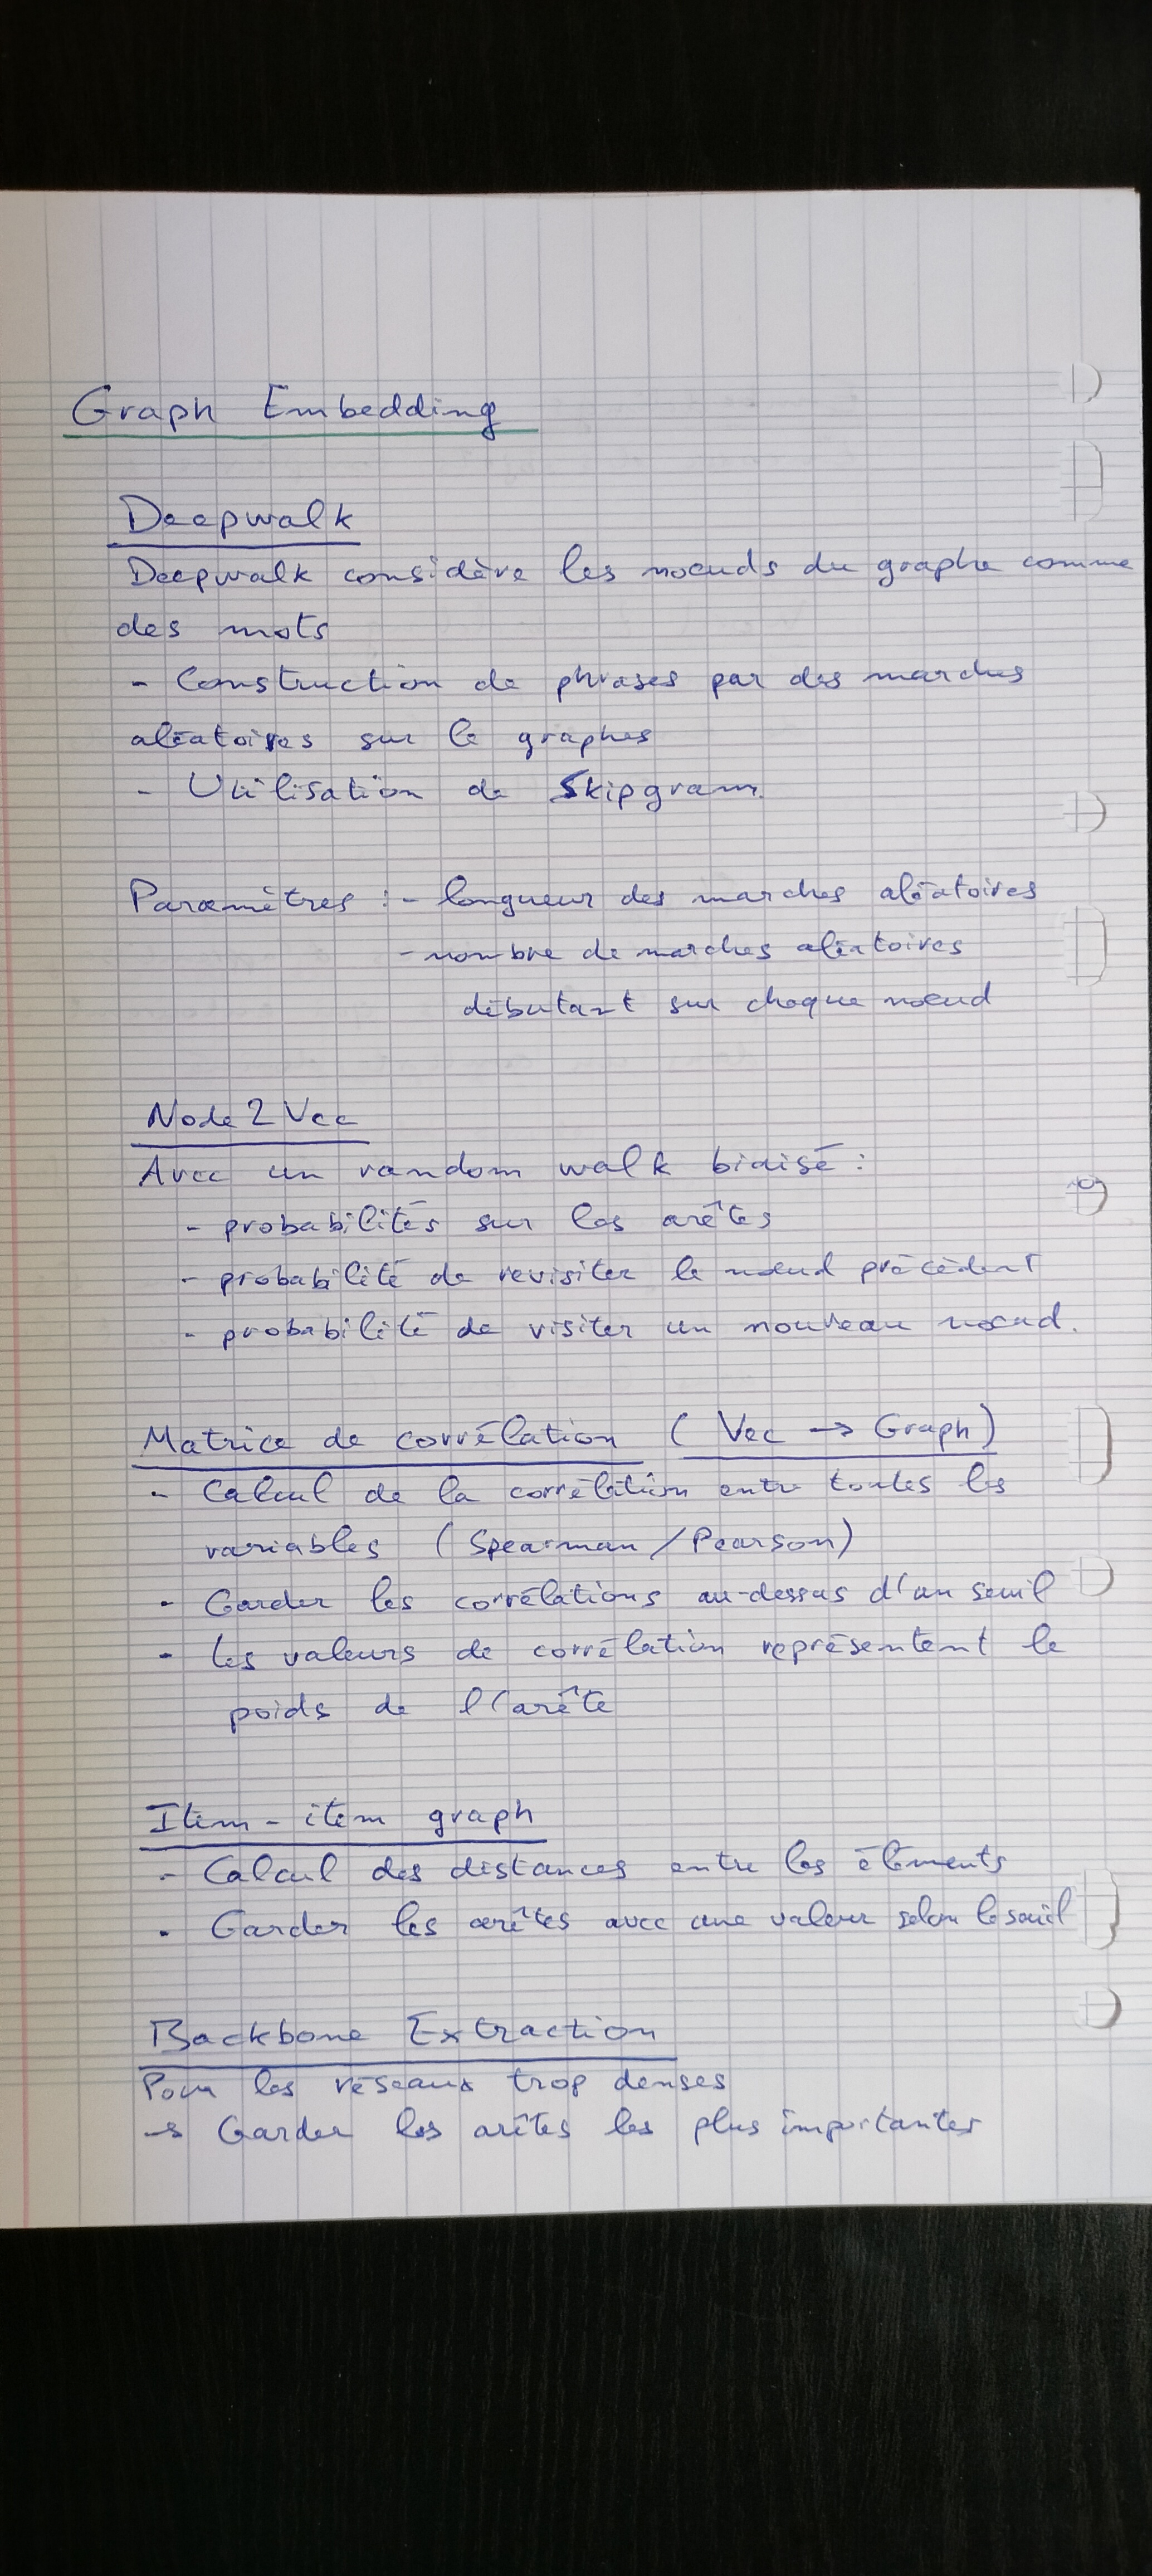 Graph Embedding
Deepwalk
Deepwalk considère les noeuds du graphe comme
des mots
- Construction de phrases par des marches
aléatoires sur le graphes
- Utilisation de Skipgram
Paramètres : - longueur des marches aléatoires
- nombre de marches aléatoires
débutant sur chaque noeud
Node 2 Vec
Avec un random walk biaisé :
- probabilités sur les arêtes
- probabilité de revisiter le noeud précèdent
- probabilité de visiter un nouveau noeud.
Matrice de corrélation (Vec → Graph)
- Calcul de la corrélation entre toutes les
variables (Spearman / Pearson)
- Garder les corrélations au-dessus d'un seuil
- les valeurs de corrélation représentent le
poids de l'arête
Item - item graph
- Calcul des distances entre les éléments
- Garder les arêtes avec une valeur selon le seuil
Backbone Extraction
Pour les réseaux trop denses
→ Garder les arêtes les plus importantes